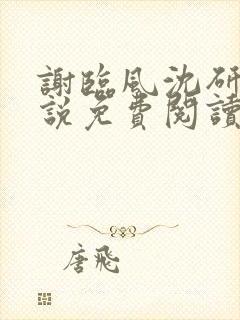 謝臨風沈研
說免費閱讀
唐飛